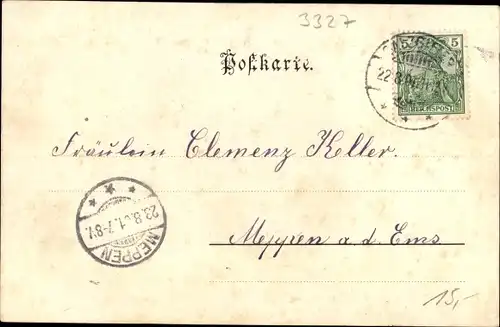 3327
Postkarte.
5
REICHSPOST
22.8.
Fräulein Clemenz Keller.
23.8.01.7-8V.
MEPPEN
Meppen a. d. Ems
15,-